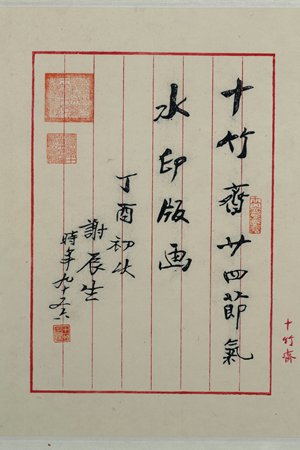 十竹齋廿四節氣
水印版画
丁酉初
謝辰生
時年九十
十竹齋